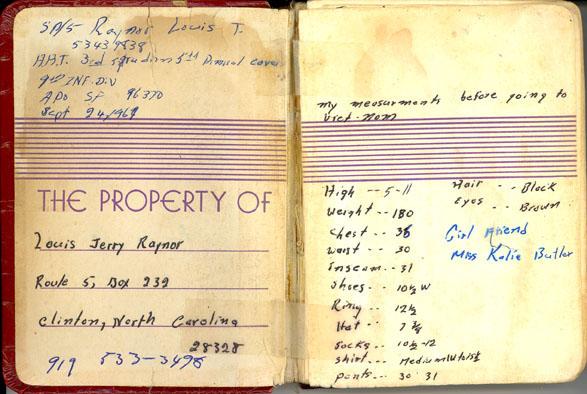 SP/5 Raynor Louis T.
53439838
H.H.T. 3rd 5th
9th INF. DIV
APO SF 96370
Sept 24, 1969
THE PROPERTY OF
Louis Jerry Raynor
Route 5, Box 239
Clinton, North Carolina
28328
919 533-3498
my measurments before going to
Viet-nam
High -- 5-11
Weight -- 180
Chest -- 36
Waist -- 30
Inseam -- 31
Shoes -- 10½ W
Ring -- 12½
Hat -- 7 ¾
Socks -- 10½-12
Shirt -- Medium
pants --- 30 31
Hair -- Black
Eyes -- Brown
Girl Friend
Miss Katie Butler